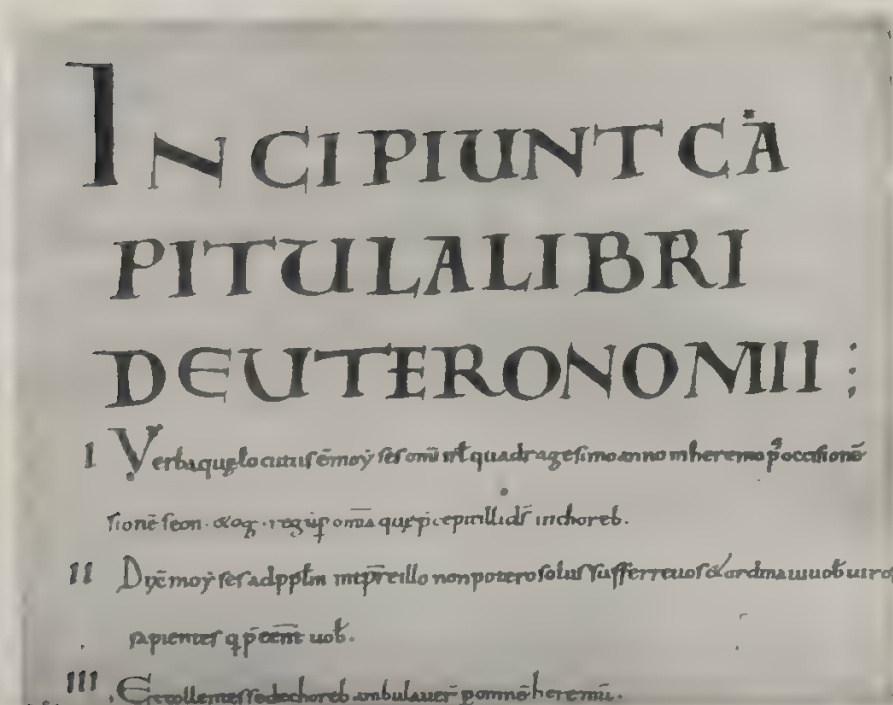 INCIPIUNT CA
PITULA LIBRI
DEUTERONOMII ;
I Verba quę locutus ē moẏses omī isrł quadragesimo anno in heremo p̄ occisionē
sionē seon · & og · regūq; om̄a quę p̄cepit illi ds̄ in choreb .
II Dix̄ moẏses ad ppłm in tp̄re illo non potero solus sufferre uos & ordinaui uob̄ uiros
sapientes q p̄eēnt uob̄ .
III Et tollentes se de choreb ambulauer̄ p omnē heremū .